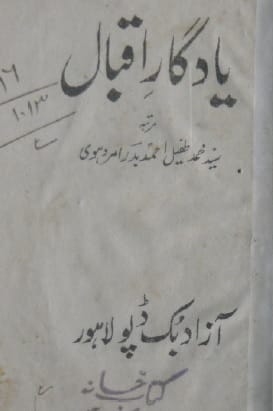 یادگارِ اقبال
مرتبہ
سید محمد طفیل احمد بدر امروہوی
آزاد بک ڈپو لاہور
کتب خانہ
۱۶
۱۰۱۳